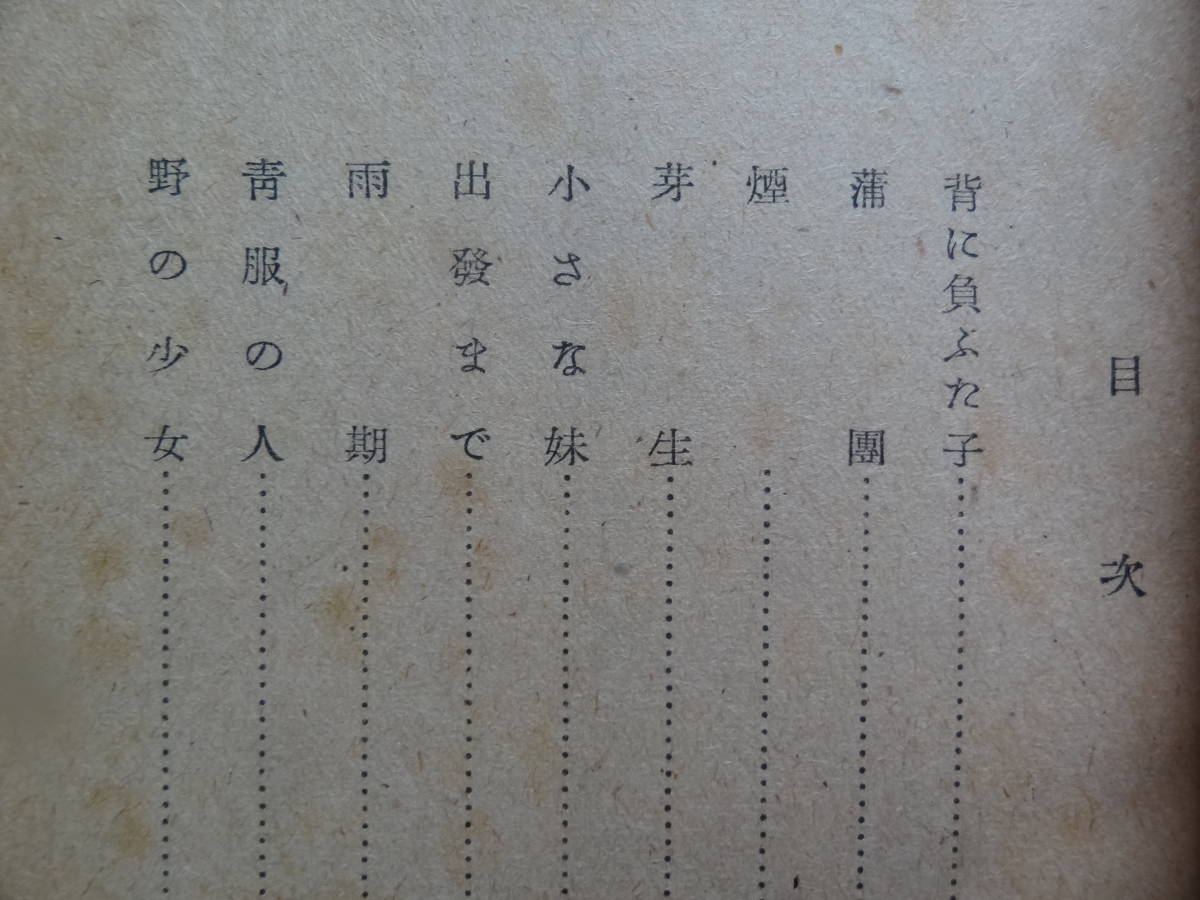 目次
背に負ふた子
蒲團
煙
芽生
小さな妹
出發まで
雨期
靑服の人
野の少女